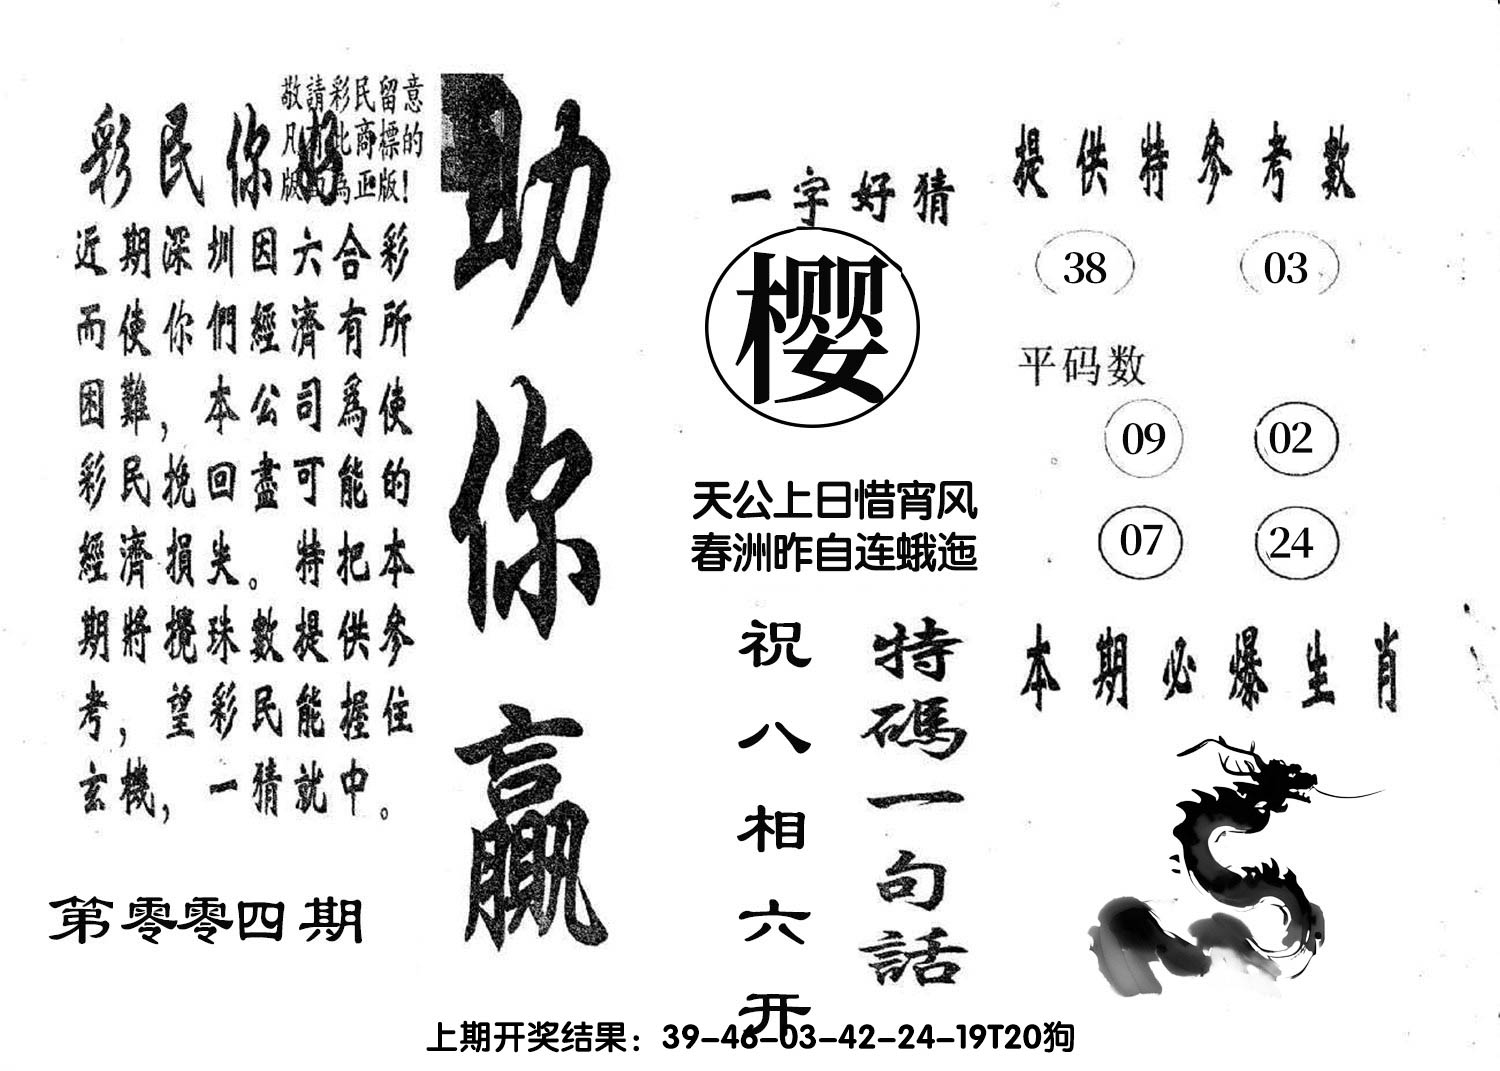 敬請彩民留意
凡有此商標的
版面為正版！
彩民你好
近期深圳因六合彩
而使你們經濟有所
困難，本公司爲使
彩民挽回盡可能的
經濟損失。特把本
期將攪珠數提供參
考，望彩民能握住
玄機，一猜就中。
第零零四期
助你贏
一字好猜
樱
天公上日惜宵风
春洲昨自连蛾迤
特碼一句話
祝八相六开
提供特參考數
38 03
平码数
09 02
07 24
本期必爆生肖
上期开奖结果：39-46-03-42-24-19T20狗